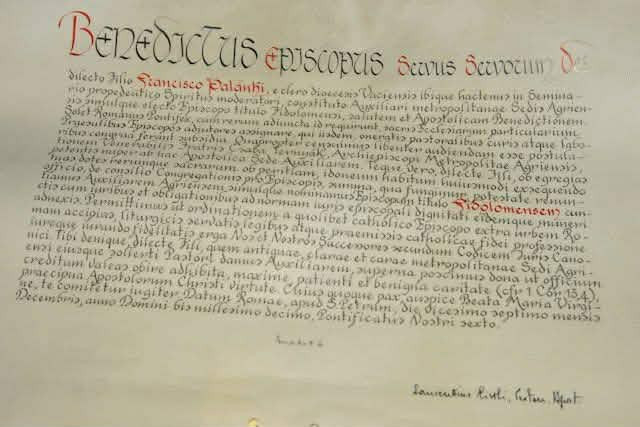 BENEDICTUS EPISCOPUS SERVUS SERVORUM DEI
dilecto Filio Francisco Palánki, e clero dioecesis Vaciensis ibique hactenus in Semina-
rio propedeutico Spiritus moderatori, constituto Auxiliari metropolitanae Sedis Agrien-
sis simulque electo Episcopo titulo Fidolomensi, salutem et Apostolicam Benedictionem.
Solet Romanus Pontifex, cum rerum adiuncta id requirunt, sacris Ecclesiarum particularium
Praesulibus Episcopos adiutores assignare, qui iisdem, oneratis pastoralibus curis atque labo-
ribus congrua ferant subsidia. Quapropter censuimus libenter audiendam esse postula-
tionem Venerabilis Fratris Csaba Ternyák, Archiepiscopi Metropolitae Agriensis,
petentis nuper ab hac Apostolica Sede Auxiliarem. Teque vero, dilecte Fili, ob egregias
tuas dotes rerumque sacrarum peritiam, idoneum habitum huiusmodi exsequendo
officio, de consilio Congregationis pro Episcopis, summa, qua fungimur, potestate renun-
tiamus Auxiliarem Agriensem, simulque nominamus Episcopum titulo Fidolomensem cun-
ctis cum iuribus et obligationibus ad normam iuris episcopali dignitati eidemque muneri
adnexis. Permittimus ut ordinationem a quolibet catholico Episcopo extra urbem Ro-
mam accipias, liturgicis servatis legibus atque praemissis catholicae fidei professione
iureque iurando fidelitatis erga Nos et Nostros Successores secundum Codicem Iuris Cano-
nici. Tibi demque, dilecte Fili, quem antiquae, clarae et carae metropolitanae Sedi Agri-
ensi eiusque sollerti Pastori damus Auxiliarem, superna poscimus dona ut officium
creditum valeas obire adhibita, maxime, patienti et benigna caritate (cfr 1 Cor 13,4),
praecipua Apostolorum Christi virtute. Cuius quoque pax, auspice Beata Maria Virgi-
ne, te comitetur iugiter. Datum Romae, apud S. Petrum, die vicesimo septimo mensis
Decembris, anno Domini bis millesimo decimo, Pontificatus Nostri sexto.